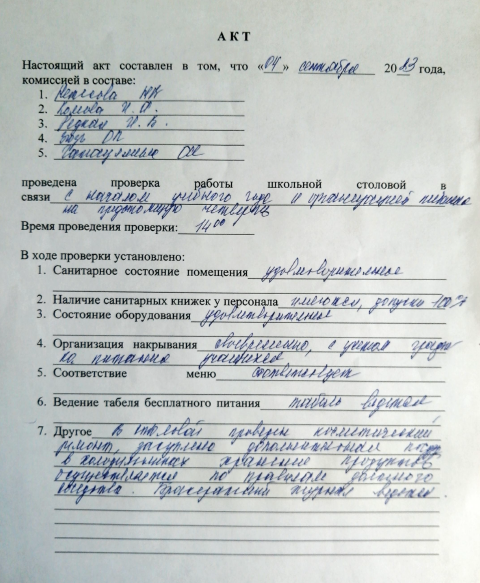 АКТ
Настоящий акт составлен в том, что «04» сентября 2023 года,
комиссией в составе:
1.
2.
3.
4.
5.
проведена проверка работы школьной столовой в
связи с началом учебного года и организацией питания
на четверть
Время проведения проверки: 14 00
В ходе проверки установлено:
1. Санитарное состояние помещения удовлетворительное
2. Наличие санитарных книжек у персонала имеются, допуски 100%
3. Состояние оборудования удовлетворительное
4. Организация накрывания своевременно, с учётом графи
ка питания учащихся
5. Соответствие меню соответствует
6. Ведение табеля бесплатного питания табель ведётся
7. Другое В столовой проведён косметический
ремонт, закуплено дополнительная
в холодильниках хранение продуктов
осуществляется по правилам
соседства. Бракеражный журнал ведётся.